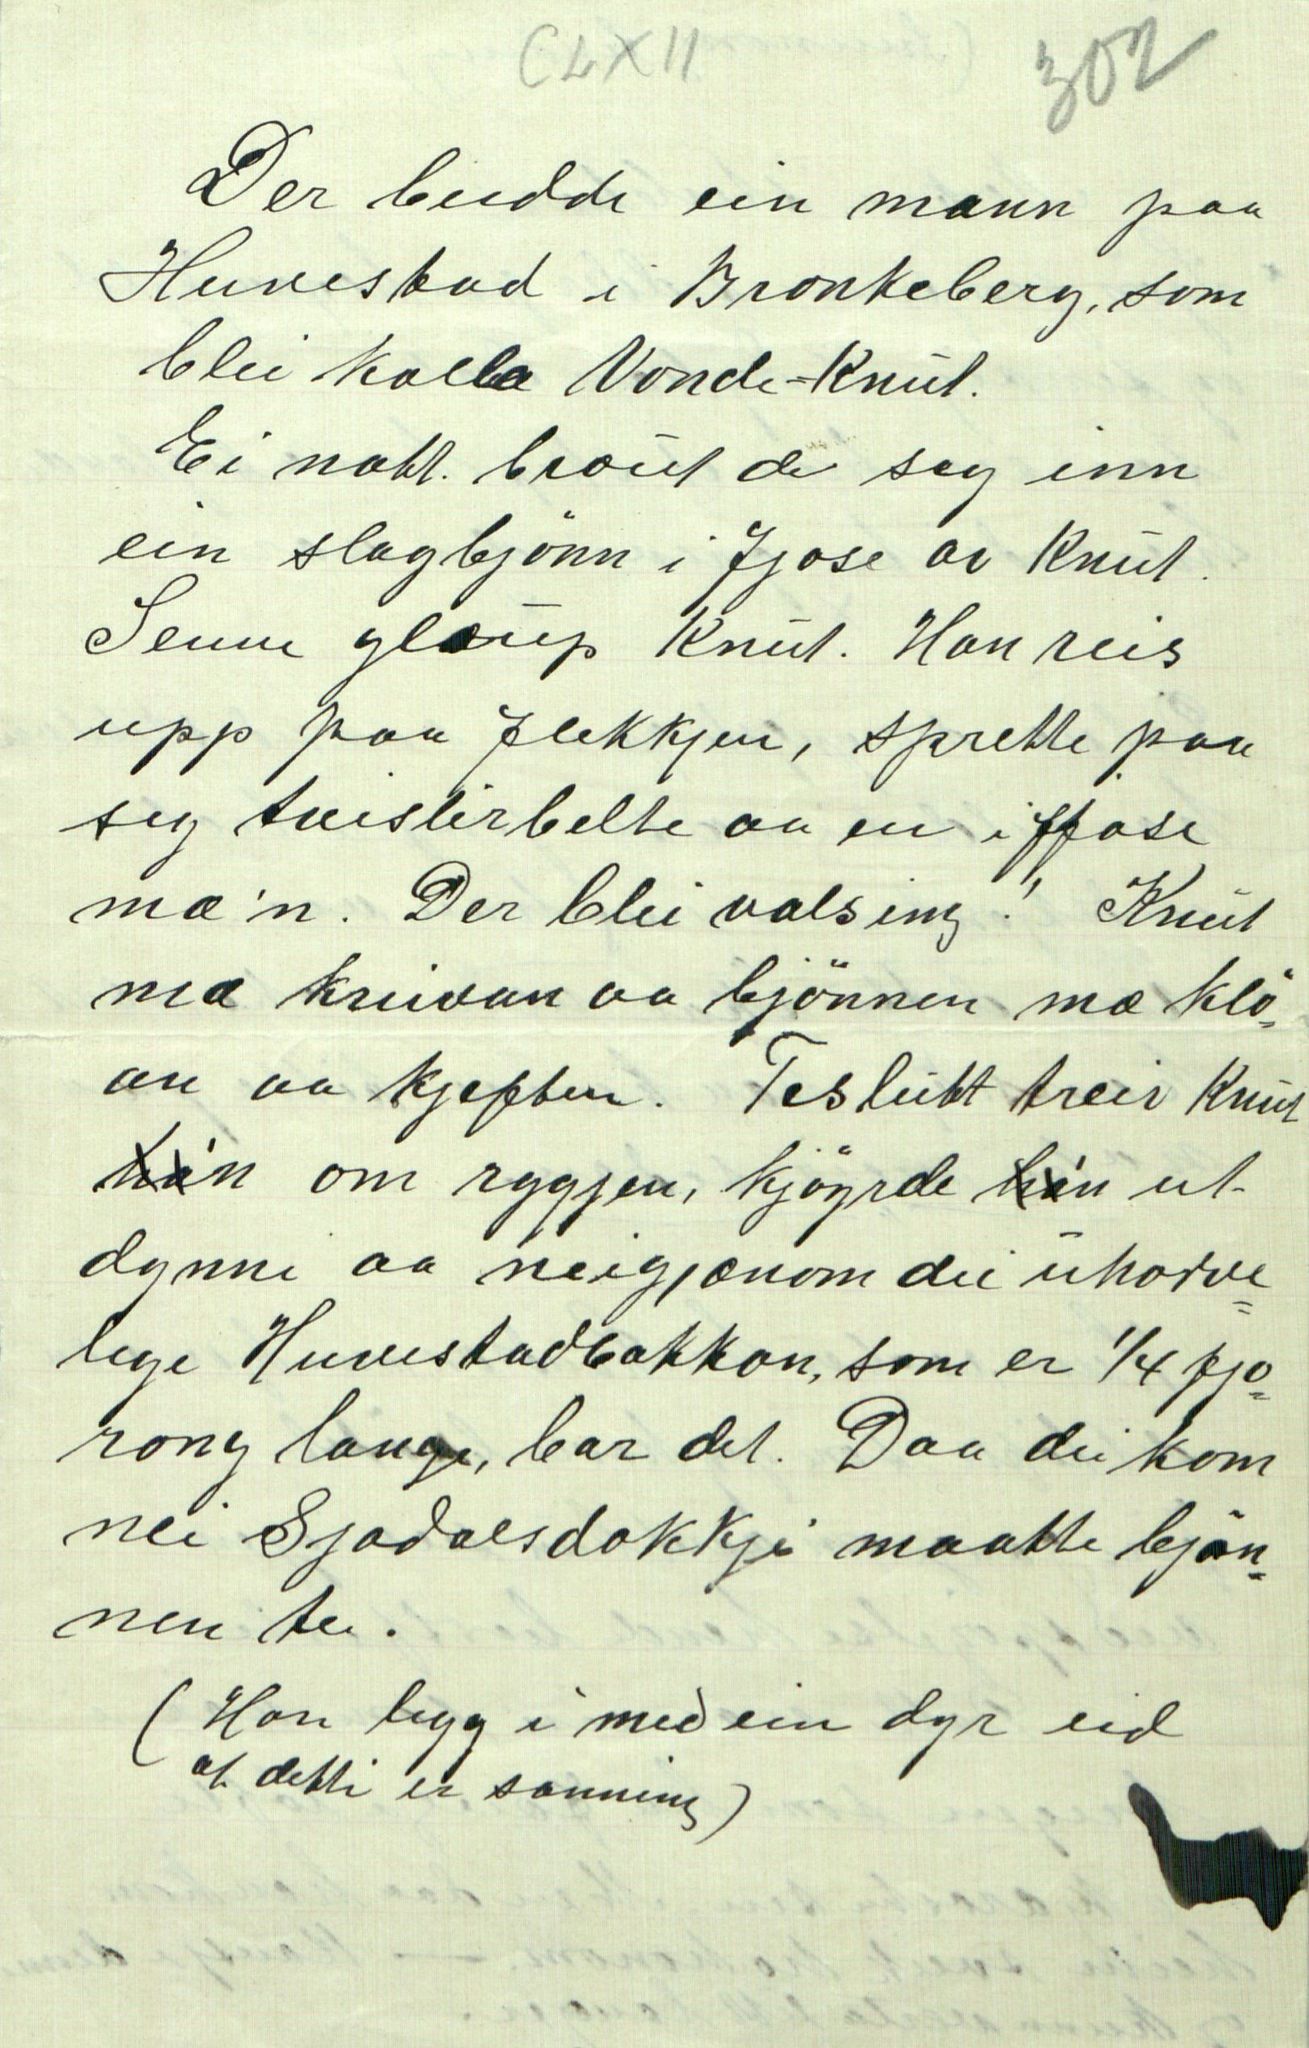 CLXII
302
Der budde ein mann paa
Huvestad i Brønkeberg, som
blei kalla Vonde-Knut.
Ei natt. braut de seg inn
ein slagbjönn i fjose av Knut.
Senn glaup Knut. Han reis
upp paa flekkjen, sprette paa
seg tvislirbelte aa en i fjose
mæ'n. Der blei valsing! Knut
mæ knivan aa bjönnen mæ klö-
an aa kjeften. Teslutt treiv Knut
'n om ryggjen, kjöyrde 'n ut-
dynni aa neigjænom dei uhorve-
lege Huvestadbakkan, som er 1/4 fjo-
rong lange, bar det. Daa dei kom
nei Sjadalsdokkji maatte bjön-
nen te.
(Han legg i med ein dyr eid
at detti er sanning)